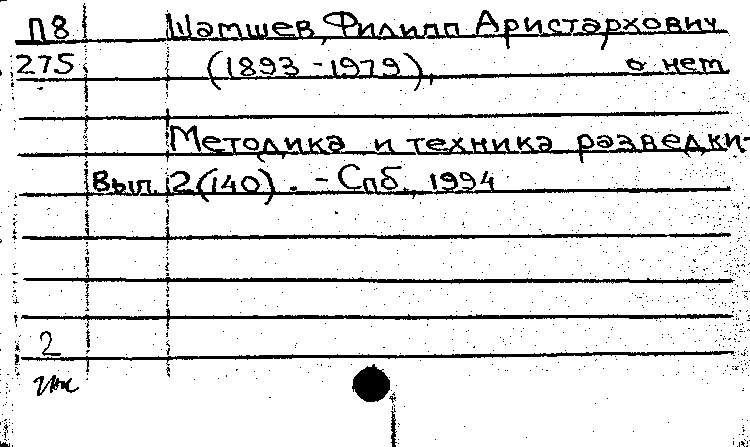 П8 Шамшев, Филипп Аристархович
275 (1893-1979), о нем
Методика и техника разведки.-
Вып. 2(140). - Спб., 1994
2